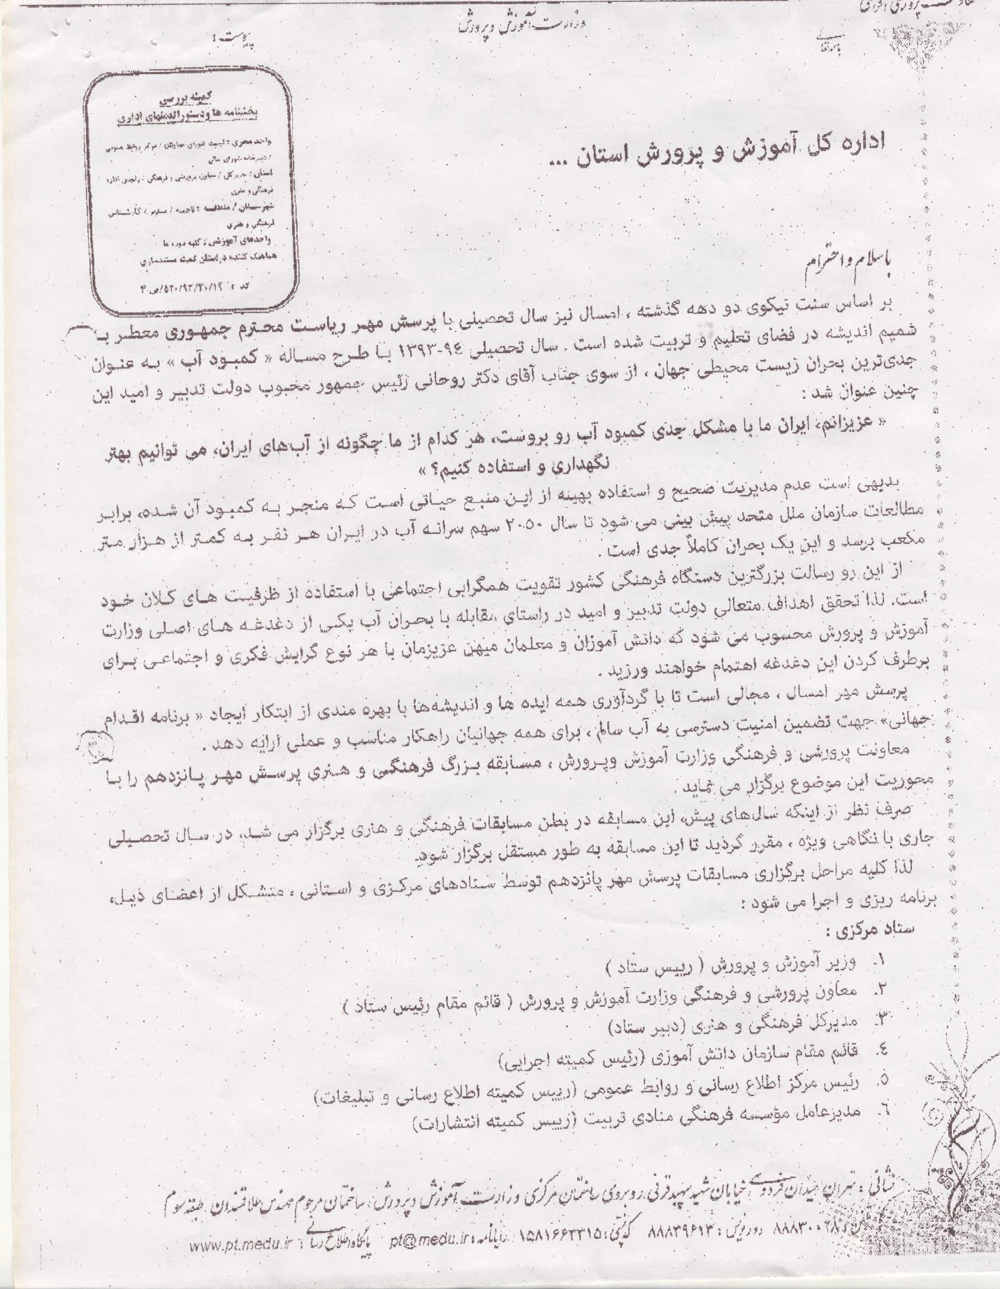 وزارت آموزش و پرورش
باسمه تعالی
پیوست :
کمیته بررسی
بخشنامه ها و دستورالعملهای اداری
واحد مجری :
فرهنگی و هنری
شهرستان / منطقه :
فرهنگی و هنری
واحدهای آموزشی : کلیه دوره ها
هماهنگ کننده در استان کمیته مستندسازی
اداره کل آموزش و پرورش استان ...
با سلام و احترام
بر اساس سنت نیکوی دو دهه گذشته ، امسال نیز سال تحصیلی با پرسش مهر ریاست محترم جمهوری معطر به
شمیم اندیشه در فضای تعلیم و تربیت شده است . سال تحصیلی ۹۴-۱۳۹۳ با طرح مساله « کمبود آب » به عنوان
جدی‌ترین بحران زیست محیطی جهان ، از سوی جناب آقای دکتر روحانی رئیس جمهور محبوب دولت تدبیر و امید این
چنین عنوان شد :
« عزیزانم، ایران ما با مشکل جدی کمبود آب رو بروست، هر کدام از ما چگونه از آب‌های ایران، می توانیم بهتر
نگهداری و استفاده کنیم؟ »
بدیهی است عدم مدیریت صحیح و استفاده بهینه از این منبع حیاتی است که منجر به کمبود آن شده، برابر
مطالعات سازمان ملل متحد پیش بینی می شود تا سال ۲۰۵۰ سهم سرانه آب در ایران هر نفر به کمتر از هزار متر
مکعب برسد و این یک بحران کاملاً جدی است .
از این رو رسالت بزرگترین دستگاه فرهنگی کشور تقویت همگرایی اجتماعی با استفاده از ظرفیت های کلان خود
است. لذا تحقق اهداف متعالی دولت تدبیر و امید در راستای مقابله با بحران آب یکی از دغدغه های اصلی وزارت
آموزش و پرورش محسوب می شود که دانش آموزان و معلمان میهن عزیزمان با هر نوع گرایش فکری و اجتماعی برای
برطرف کردن این دغدغه اهتمام خواهند ورزید .
پرسش مهر امسال ، مجالی است تا با گردآوری همه ایده ها و اندیشه‌ها با بهره مندی از ابتکار ایجاد « برنامه اقدام
جهانی» جهت تضمین امنیت دسترسی به آب سالم ، برای همه جهانیان راهکار مناسب و عملی ارایه دهد .
معاونت پرورشی و فرهنگی وزارت آموزش وپرورش ، مسابقه بزرگ فرهنگی و هنری پرسش مهر پانزدهم را با
محوریت این موضوع برگزار می نماید .
صرف نظر از اینکه سال‌های پیش، این مسابقه در بطن مسابقات فرهنگی و هنری برگزار می شد، در سال تحصیلی
جاری با نگاهی ویژه ، مقرر گردید تا این مسابقه به طور مستقل برگزار شود.
لذا کلیه مراحل برگزاری مسابقات پرسش مهر پانزدهم توسط ستادهای مرکزی و استانی ، متشکل از اعضای ذیل،
برنامه ریزی و اجرا می شود :
ستاد مرکزی :
۱. وزیر آموزش و پرورش ( رییس ستاد )
۲. معاون پرورشی و فرهنگی وزارت آموزش و پرورش ( قائم مقام رئیس ستاد )
۳. مدیرکل فرهنگی و هنری (دبیر ستاد)
۴. قائم مقام سازمان دانش آموزی (رئیس کمیته اجرایی)
۵. رئیس مرکز اطلاع رسانی و روابط عمومی (رییس کمیته اطلاع رسانی و تبلیغات)
۶. مدیرعامل مؤسسه فرهنگی منادی تربیت (رییس کمیته انتشارات)
نشانی : تهران، میدان فردوسی، خیابان شهید سپهبد قرنی، روبروی ساختمان مرکزی وزارت آموزش و پرورش، ساختمان مرحوم مهندس علاقمندان، طبقه سوم
۸۸۸۳۰۰۲۸ دورنویس : ۸۸۸۳۹۶۱۳ کدپستی : ۱۵۸۱۶۶۳۳۱۵ رایانامه : pt@medu.ir پایگاه اطلاع رسانی : www.pt.medu.ir